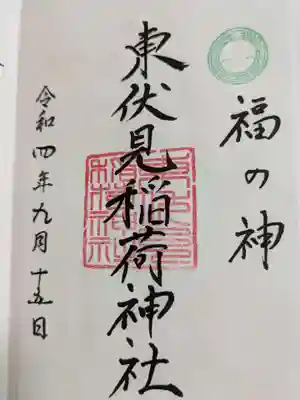 福の神
東伏見稲荷神社
令和四年九月十五日